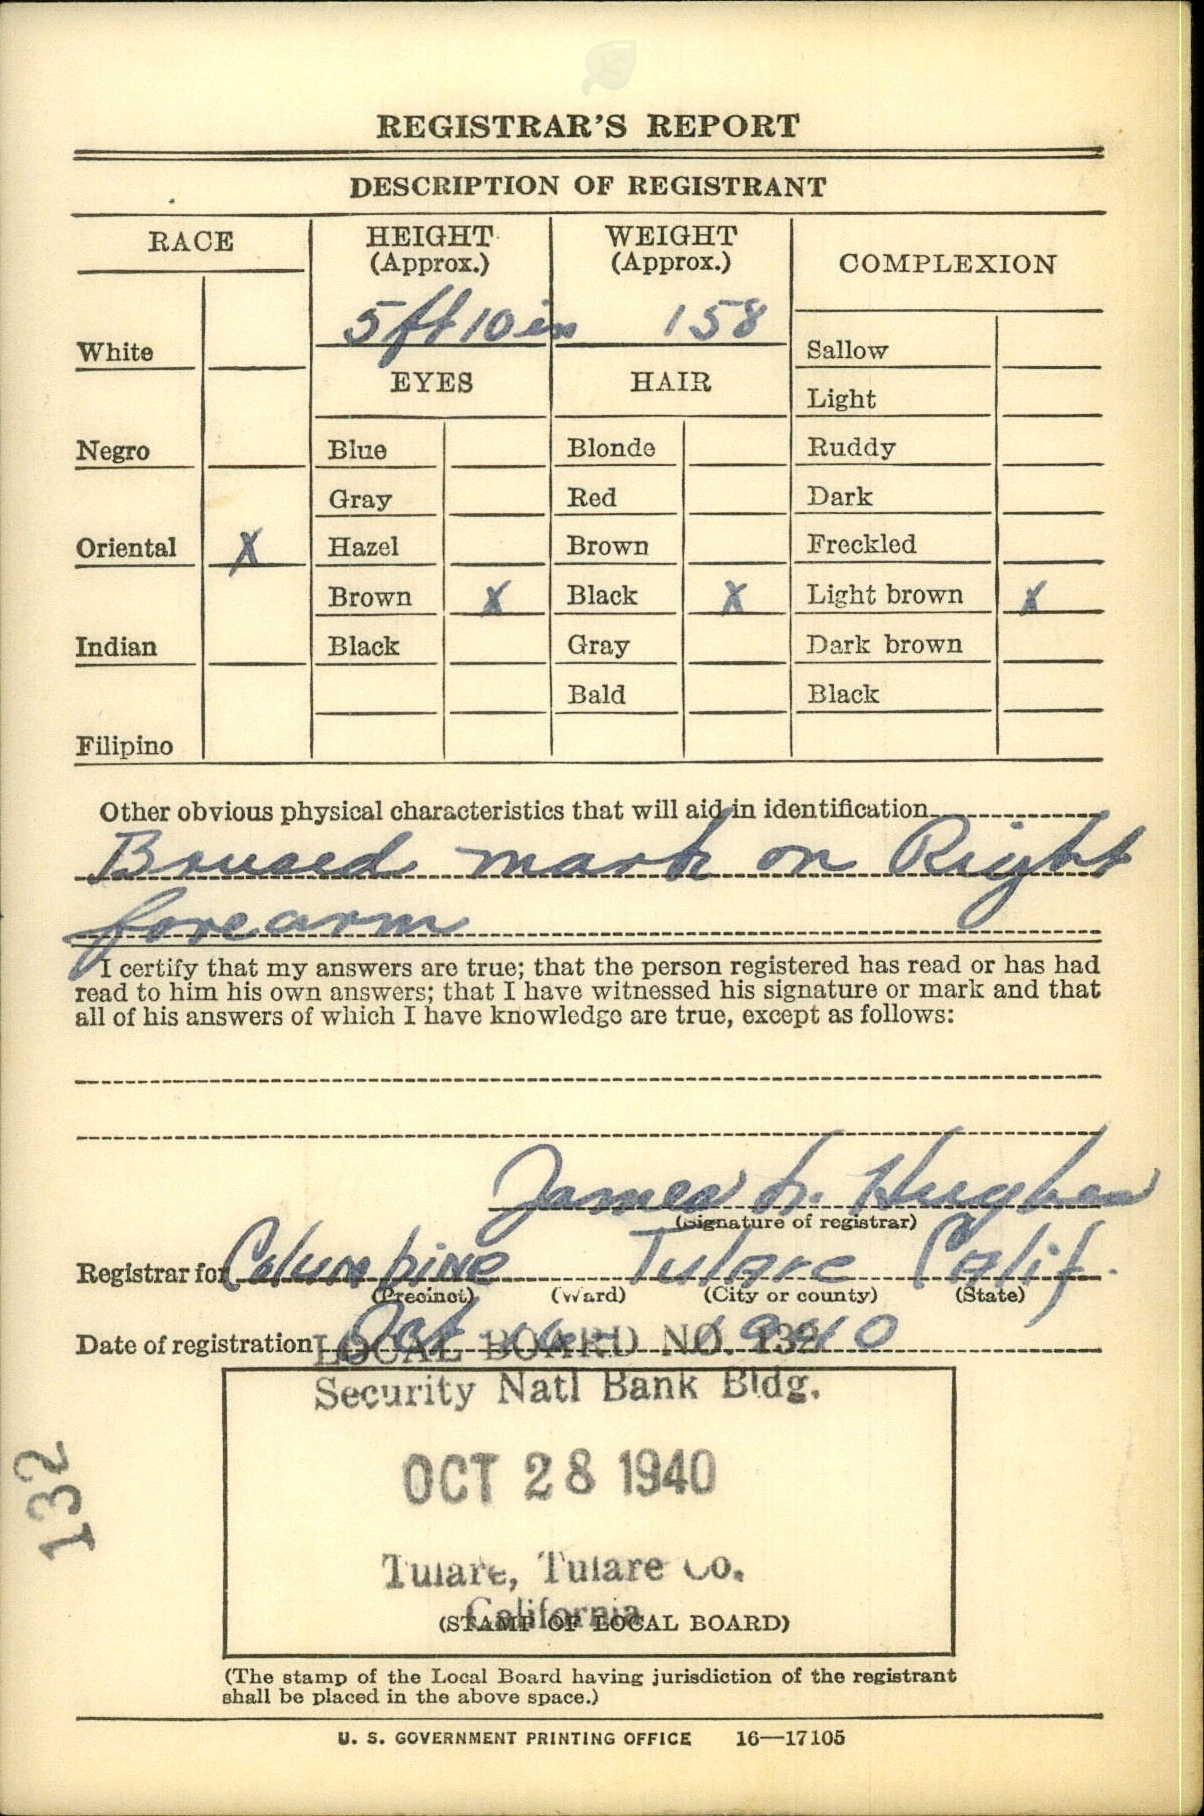 REGISTRAR'S REPORT
DESCRIPTION OF REGISTRANT
RACE
HEIGHT
(Approx.)
WEIGHT
(Approx.)
COMPLEXION
5 ft 10 in
158
White
Sallow
EYES
HAIR
Light
Negro
Blue
Blonde
Ruddy
Gray
Red
Dark
Oriental X
Hazel
Brown
Freckled
Brown X
Black X
Light brown X
Indian
Black
Gray
Dark brown
Bald
Black
Filipino
Other obvious physical characteristics that will aid in identification
Brused mark on Right
forearm
I certify that my answers are true; that the person registered has read or has had
read to him his own answers; that I have witnessed his signature or mark and that
all of his answers of which I have knowledge are true, except as follows:
James H. Hughes
(Signature of registrar)
Registrar for Columbine Tulare Calif.
(Precinct) (Ward) (City or county) (State)
Date of registration Oct 16- 1940
LOCAL BOARD NO. 132
Security Natl Bank Bldg.
OCT 28 1940
Tulare, Tulare Co.
California
(STAMP OF LOCAL BOARD)
132
(The stamp of the Local Board having jurisdiction of the registrant
shall be placed in the above space.)
U. S. GOVERNMENT PRINTING OFFICE 16—17105